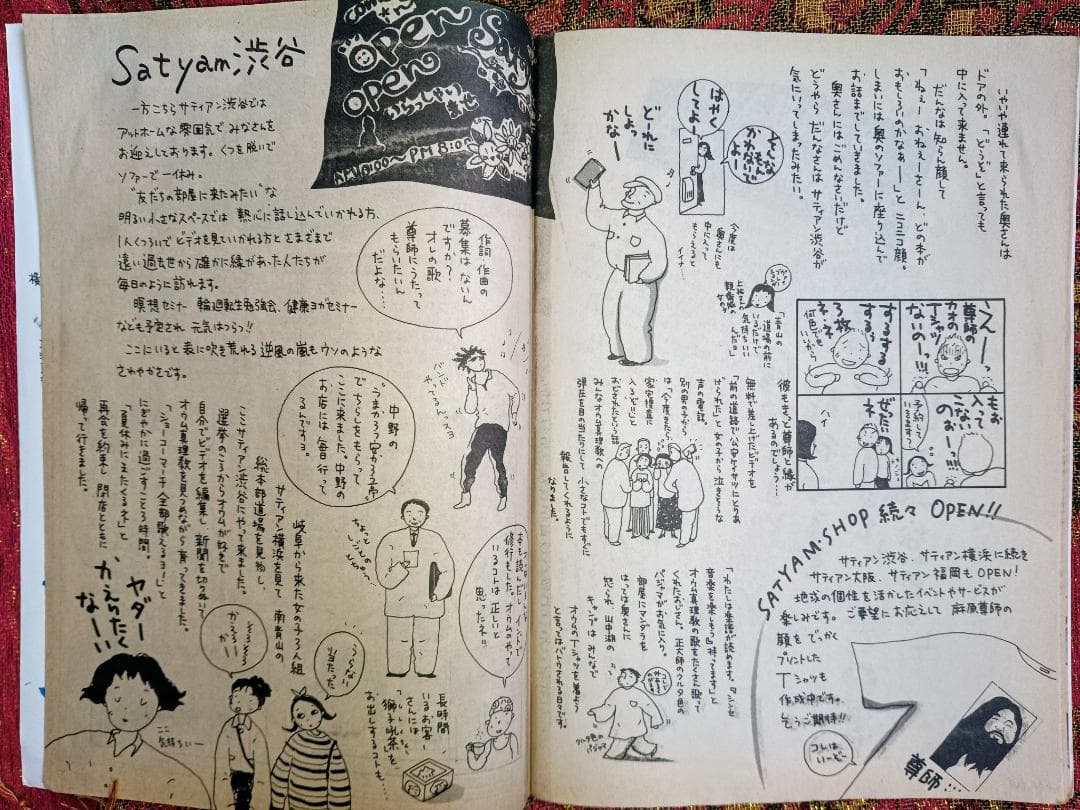 Satyam渋谷
一方こちらサティアン渋谷では
アットホームな雰囲気で みなさんを
お迎えしております。くつを脱いで
ソファーで一休み。
"友だちの部屋に来たみたい"な
明るい小さなスペースでは 熱心に話し込んでいかれる方、
1人くつろいでビデオを見ていかれる方とさまざまで
遠い過去世から確かに縁があった人たちが
毎日のように訪れます。
瞑想セミナー 輪廻転生勉強会、健康ヨガセミナー
なども予定され 元気はつらつ!!
ここにいると表に吹き荒れる逆風の嵐もウソのような
さわやかさです。
Open
Open
いらっしゃいませ
作詞 作曲の
募集はないん
ですか?
オレの歌
尊師にうたって
もらいたいん
だよな…
バンド
やってるんスよ
中野の
"うまかろう安かろう亭"
でちらしをもらって
ここに来ました。中野の
お店には毎日行って
るんですヨ。
岐阜から来た女の子3人組
サティアン横浜を見て 南青山の
総本部道場を見物し
ここサティアン渋谷にやって来ました。
選挙のころからオウムが好きで
自分でビデオを編集し 新聞を切りぬいて
オウム真理教を見つめながら育ってきました。
「ショーコーマーチ全部歌えるヨ!」と
にぎやかに過ごすこと3時間。
「夏休みにまたくるネ」と
再会を約束し 閉店とともに
帰って行きました。
ヤダー
かえりたく
なーい
そろそろ
かえろー
うらない
当たった
修行もした。オウムのやって
いるコトは 正しいと
思ったネ!!
長時間
いるお客
さんには
「獅子吼茶」を
お出しするコトも
いやいや連れて来られた奥さんは
ドアの外。「どうぞ」と言っても
中に入って来ません。
だんなは知らん顔して
「ねぇー おねぇーさーん、どの本が
おもしろいのかなぁー」とニコニコ顔。
しまいには奥のソファーに座り込んで
お話までしていきました。
奥さんにはごめんなさいだけど
どうやら だんなさんは サティアン渋谷が
気にいってしまったみたい。
はやく
してよー
そんなもん
かわないで
よー
どーれに
しよっ
かなー
今度は
奥さんにも
中に入って
もらえると
イイナ…
「青山の
道場の前に
いるだけで
気持ちいい
んだヨ」
えーっ
尊師の
カオの
Tシャツ
ないのーっ!!
するする
するぅ
3枚
ネネ
何色でも
いいから
もお
入って
こないの
おーっ!!!
予約して
いきます?
ぜったい
ネ
ハイ
彼もきっと尊師と縁が
あるのでしょう…
無料で差し上げたビデオを
「前の道路で公安ケイサツにとりあ
げられた」と女の子から 泣きそうな
声の電話。
別の男の子から
は「今度きたら
家宅捜査に
入るぞ」と
おどされたという話。
みんなオウム真理教への
弾圧を目の当たりにして 小さなコトでもすぐに
報告してくれるように
なりました。
「わたしは楽譜が読めます。『シンセ
音楽を楽しもう』持ってます」と
オウム真理教の歌をたくさん歌って
くれたおじさん。正大師のクルタ色の
パジャマがお気に入り。
部屋にマンダラを
はっては奥さんに
怒られ 山中湖の
キャンプはみんなで
オウムのTシャツを着よう
と言ってはバトウされる日々です。
クルタ色の
パジャマ
SATYAM・SHOP 続々 OPEN!!
サティアン渋谷、サティアン横浜に続き
サティアン大阪、サティアン福岡もOPEN!
地域の個性を活かしたイベントやサービスが
楽しみです。ご要望にお応えして 麻原尊師の
顔をでっかく
プリントした
Tシャツも
作成中です。
乞うご期待!!
尊師…